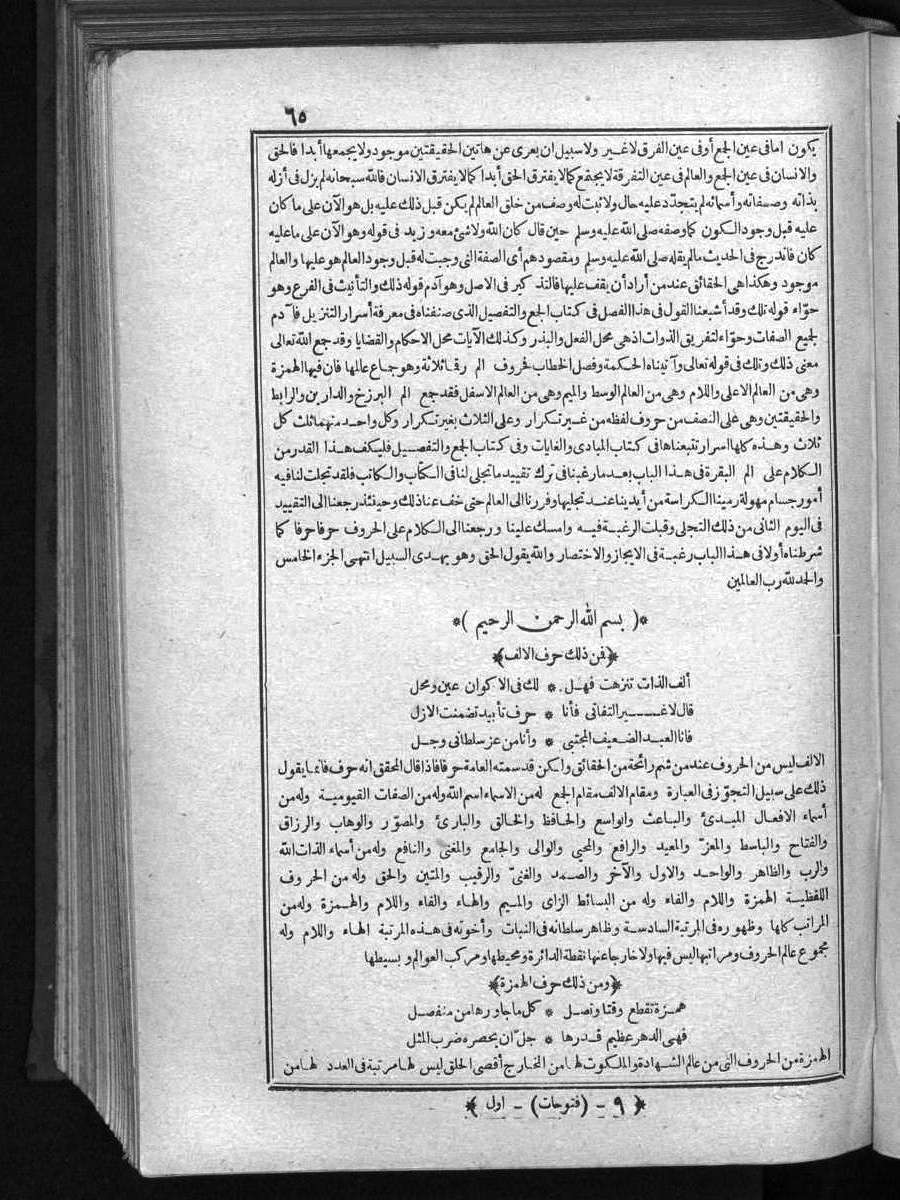 ٦٥
يكون اما في عين الجمع أو في عين الفرق لا غير ولا سبيل ان يعرى عن هاتين الحقيقتين موجود ولا يجمعها أبدا فالحق
والانسان في عين الجمع والعالم في عين التفرقة لا يجتمع كما لا يفترق الحق أبدا كما لا يفترق الانسان فالله سبحانه لم يزل في أزله
بذاته وصفاته وأسمائه لم يتجدد عليه حال ولا ثبت له وصف من خلق العالم لم يكن قبل ذلك عليه بل هو الآن على ما كان
عليه قبل وجود الكون كما وصفه صلى الله عليه وسلم حين قال كان الله ولا شئ معه وزيد في قوله وهو الآن على ما عليه
كان فاندرج في الحديث ما لم يقله صلى الله عليه وسلم ومقصودهم أى الصفة التى وجبت له قبل وجود العالم هو عليها والعالم
موجود وهكذا هى الحقائق عند من أراد أن يقف عليها فالتذكير في الاصل وهو آدم قوله ذلك والتأنيث في الفرع وهو
حوّاء قوله تلك وقد أشبعنا القول في هذا الفصل في كتاب الجمع والتفصيل الذى صنفناه في معرفة أسرار التنزيل فآدم
لجميع الصفات وحوّاء لتفريق الذوات اذ هى محل الفعل والبذر وكذلك الآيات محل الاحكام والقضايا وقد جمع الله تعالى
معنى ذلك وتلك في قوله تعالى وآتيناه الحكمة وفصل الخطاب فحروف الم رقما ثلاثة وهو جماع عالمها فان فيها الهمزة
وهى من العالم الاعلى واللام وهى من العالم الوسط والميم وهى من العالم الاسفل فقد جمع الم البرزخ والدارين والرابط
والحقيقتين وهى على النصف من حروف لفظه من غير تكرار وعلى الثلاث بغير تكرار وكل واحد منهما ثلث كل
ثلاث وهذه كلها اسرار تتبعناها في كتاب المبادى والغايات وفي كتاب الجمع والتفصيل فليكف هذا القدر من
الكلام على الم البقرة في هذا الباب بعد ما رغبنا في ترك تقييد ما تجلى لنا في الكتاب والكاتب فلقد تجلت لنا فيه
أمور جسام مهولة رمينا الكراسة من أيدينا عند تجليها وفررنا الى العالم حتى خف عنا ذلك وحينئذ رجعنا الى التقييد
في اليوم الثانى من ذلك التجلى وقبلت الرغبة فيه وامسك علينا ورجعنا الى الكلام على الحروف حرفا حرفا كما
شرطناه أولا في هذا الباب رغبة في الايجاز والاختصار والله يقول الحق وهو يهدى السبيل انتهى الجزء الخامس
والحمد لله رب العالمين
*( بسم الله الرحمن الرحيم )*
﴿فمن ذلك حرف الالف﴾
ألف الذات تنزهت فهل * لك في الاكوان عين ومحل
قال لا غير التفاتى فأنا * حرف تأبيد تضمنت الازل
فانا العبد الضعيف المجتبى * وأنا من عز سلطانى وجل
الالف ليس من الحروف عند من شم رائحة من الحقائق ولكن قد سمته العامة حرفا فاذا قال المحقق انه حرف فانما يقول
ذلك على سبيل التجوّز في العبارة ومقام الالف مقام الجمع له من الاسماء اسم الله وله من الصفات القيومية وله من
أسماء الافعال المبدئ والباعث والواسع والحافظ والخالق والبارئ والمصوّر والوهاب والرزاق
والفتاح والباسط والمعزّ والمعيد والرافع والمحيى والوالى والجامع والمغنى والنافع وله من أسماء الذات الله
والرب والظاهر والواحد والاول والآخر والصمد والغنىّ والرقيب والمتين والحق وله من الحروف
اللفظية الهمزة واللام والفاء وله من البسائط الزاى والميم والهاء والفاء واللام والهمزة وله من
المراتب كلها وظهوره في المرتبة السادسة وظاهر سلطانه في النبات وأخوته في هذه المرتبة الهاء واللام وله
مجموع عالم الحروف ومراتبها ليس فيها ولا خارجا عنها نقطة الدائرة ومحيطها ومركب العوالم وبسيطها
﴿ومن ذلك حرف الهمزة﴾
همزة تقطع وقتا وتصل * كل ما جاورها من منفصل
فهى الدهر عظيم قدرها * جلّ أن يحصره ضرب المثل
الهمزة من الحروف التى من عالم الشهادة والملكوت لها من المخارج أقصى الحلق ليس لها مرتبة في العدد لها من
﴿ ٩ - (فتوحات) - اول ﴾